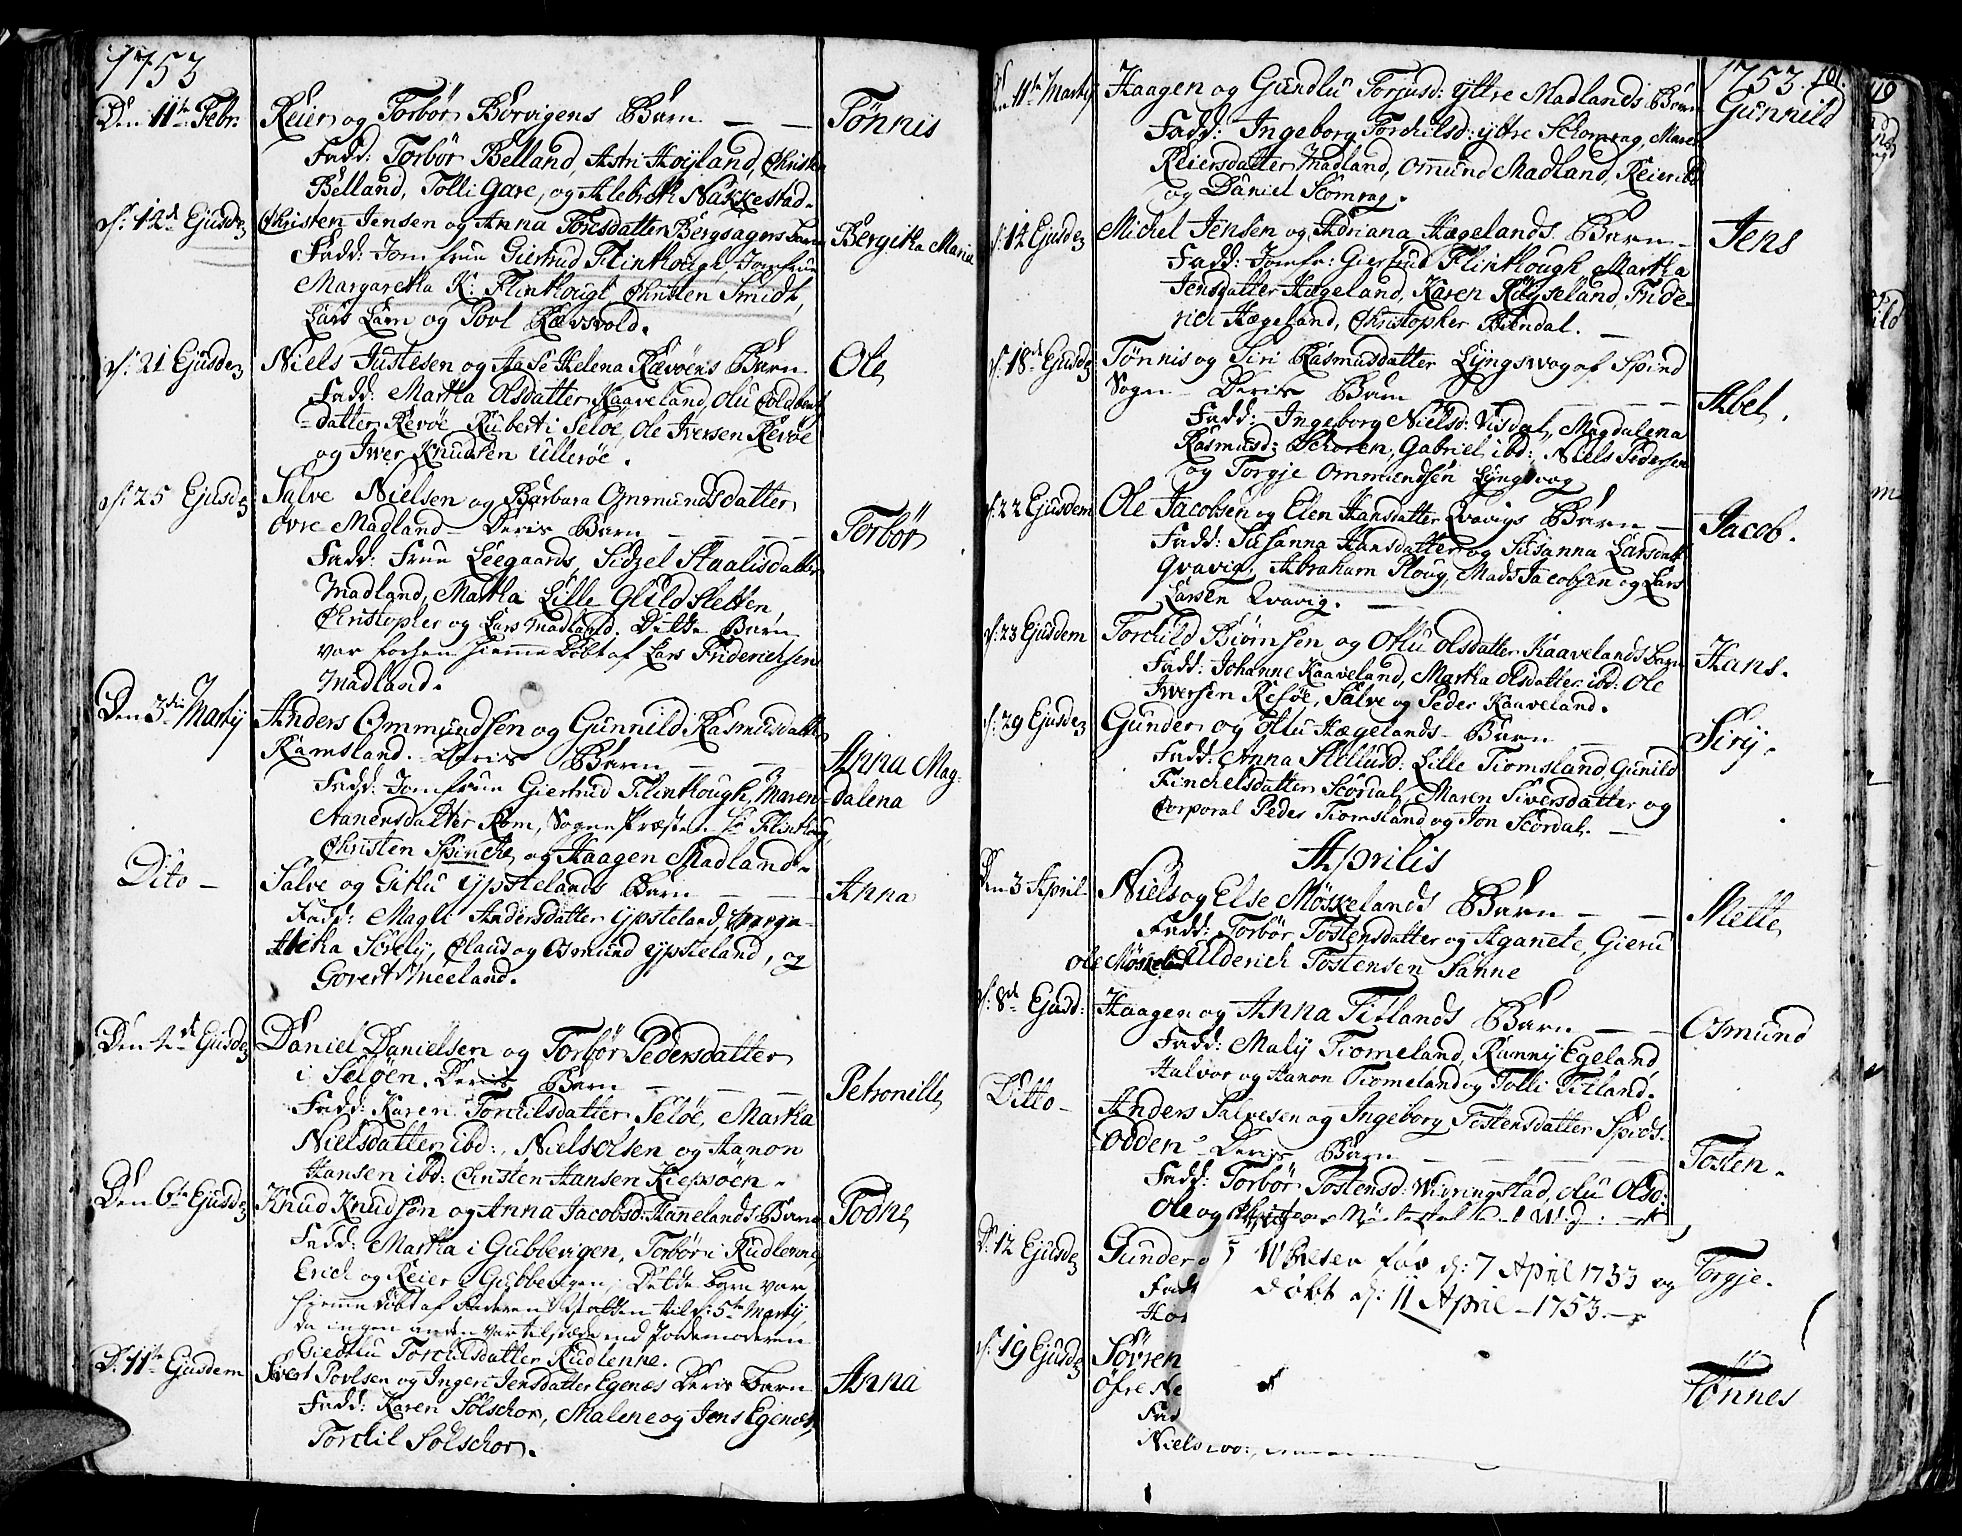 1753
Den 11te Febr. Reier og Torbør Borvigens Barn — — Tönnis
Fadd: Torbør Belland, Astri Høyland, Christen
Belland, Tolli Gare, og Alebreth Nakkestad.
d: 14de Ejusdem Christen Jensen og Anna Tonisdatter Bergsagers Barn Bergitha Maria
Fadd: Jomfrue Giertrud Flinthough, Jomfrue
Margaretha K: Flinthougt, Christen Smidt,
Lars Lam og Povl Rævsvold.
d: 21 Ejusdem Niels Justesen og Aase Helena Rævöens Barn Ole
Fadd: Martha Olsdatter Kaaveland, Olu
datter Revöe, Rubert i Selöe, Ole Iversen Revöe
og Iwer Knudsen Ulleröe.
d: 25 Ejusdem Salve Nielsen og Barbara Ommundsdatter
övre Madland — Deris Barn — — Torbör
Fadd: Frue Leegaards, Sidzel Staalisdatter
Madland, Martha Lille Guldsletten,
Christopher og Lars Madland. Dette Barn
var forhen hiemme döbt af Lars Friderichsen
Madland.
Den 3die Martij Anders Ommundsen og Gunnild Rasmusdatter
Ramsland. Deris Barn — — Anna Mag-
Fadd: Jomfrue Giertrud Flinthough, Maren dalena
Aanensdatter Rom, Sogne Præsten Hr Flinthoug,
Christen Spinche og Haagen Madland.
Dito — Salve og Gitlu Ypstelands Barn — — Anna
Fadd: Magli Andersdatter Ypsteland, Marga-
retha Sörely, Claus og Osmund Ypsteland, og
Govert Meeland.
Den 4de Ejusdem Daniel Danielsen og Torbör Pedersdatter
i Selöen. Deris Barn — — Petronille
Fadd: Karen Torchilsdatter Selöe, Martha
Nielsdatter ibd:, Niels Olsen og Hanon
Hansen ibd: Christen Hansen Kiepsöen.
Den 6te Ejusdem Knud Knudsen og Anna Jacobsd: Hanelands Barn Todne
Fadd: Martha i Gubbevigen, Torbör i Rudlenne,
Erich og Reier i Gubbevigen. Dette barn var
hiemme döbt af Faderen d: 5te Martij,
da ingen anden var tilstæde end Jordemoderen
Giedlu Torchilsdatter Rudlenne.
D: 11te Ejusdem Sivert Povlsen og Ingeri Jensdatter Egenæs Deris Barn Anna
Fadd: Karen Solschor, Malene og Jens Egenæs,
Torchil Solschor.
1753. 101.
D: 11te Martij Haagen og Gundlu Torjusd: yttre Madlands Barn Gunnild
Fadd: Ingeborg Torchilsd: yttre Schomrag, Maren
Reiersdatter Madland, Ommund Madland, Reier ibd:
og Daniel Scomrag.
d: 14 Ejusdem Michel Jensen og Adriana Hægelands Barn — Jens
Fadd: Jomfr: Giertrud Flinthough, Martha
Jensdatter Hægeland, Karen Röyseland, Fride-
rich Hægeland, Christopher Birndal. —
d: 18de Ejusdem Tönnis og Siri Rasmusdatter Lyngswog af Spind
Sogn — Deris Barn — — Abel.
Fadd: Ingeborg Nielsd: Visdal, Magdalena
Rasmusd: Schoren, Gabriel ibd:, Niels Pedersen
og Torgje Ommundsen Lyngwog
d: 22 Ejusdem Ole Jacobsen og Elen Hansdatter Qvavigs Barn — Jacob.
Fadd: Susanna Hansdatter og Susanna Larsdatter
Qvavig, Abraham Ploug, Mads Jacobsen og Lars
Larsen Qvavig.
d: 23 Ejusdem Torchild Biörnsen og Ollu Olsdatter Kaavelands Barn Hans.
Fadd: Johanne Kaaveland, Martha Olsdatter ibd: Ole
Iwersen Resöe, Salve og Peder Kaaveland.
d: 29 Ejusdem Gunder og Ollu Hægelands — Barn — Sirij.
Fadd: Anna Lille Tiomsland, Gunild
Finchelsdatter Scördal, Maren Siversdatter og
Corporal Peder Tiomsland og Jon Scördal. —
Aprilis
Den 3 April Niels og Else Möskelands Barn — — Mette
Fadd: Torbör Tostensdatter og Aganete Gieru
Ole Möskeland Ulderich Tostensen Sanne
d: 8de Ejusd: Haagen og Anna Titlands Barn — — Osmund
Fadd: Malij Tiomeland, Runny Egeland,
Halvor og Hanon Tiomeland og Tolli Titland.
Ditto — Anders Salvesen og Ingeborg Tostensdatter Spids-
odden — Deris Barn — — Tosten.
Fadd: Torbör Tostensd: Widringstad, Olu Olsd:
Ole og
D: 12 Ejusdem Gunder o Torgje.
Fadd
Ho
er föd d: 7 April 1753 og
döbt d: 11 April — 1753. —
d: 19 Ejusdem Sövren Tönnes
Öfre Ne
Fad
Niels